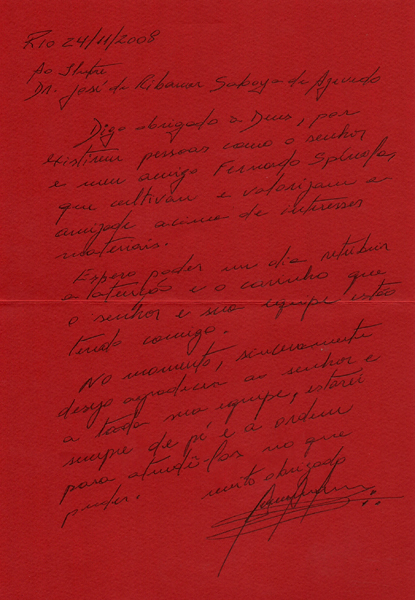 Rio 24/11/2008
Ao Ilustre
Dr. José de Ribamar Saboya de Azevedo
Digo obrigado a Deus, por
existirem pessoas como o senhor
e meu amigo Fernando Spinola,
que cultivam e valorizam a
amizade acima de interesses
materiais.
Espero poder um dia retribuir
a atenção e o carinho que
o senhor e sua equipe estão
tendo comigo.
No momento, sinceramente
desejo agradecer ao senhor e
a toda sua equipe, estarei
sempre de pé e a ordem
para atendê-los no que
puder. muito obrigado